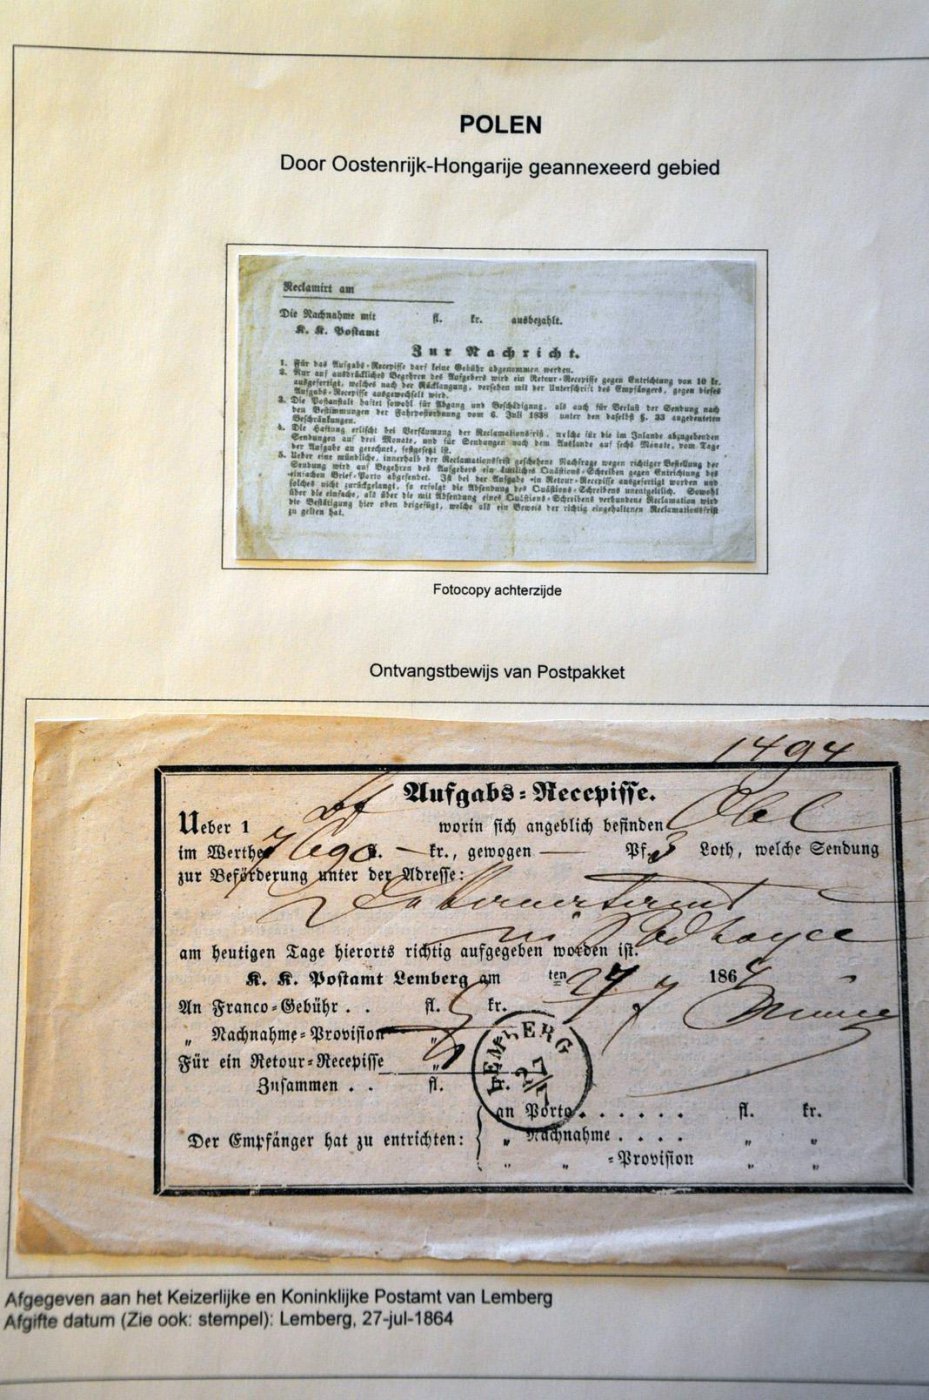 POLEN
Door Oostenrijk-Hongarije geannexeerd gebied
Reclamirt am
Die Nachnahme mit fl. kr. ausbezahlt.
K. K. Postamt
Zur Nachricht.
1. Für das Aufgabs-Recepisse darf keine Gebühr abgenommen werden.
2. Nur auf ausdrückliches Begehren des Aufgebers wird ein Retour-Recepisse gegen Entrichtung von 10 kr.
ausgefertigt, welches nach der Rücklangung, versehen mit der Unterschrift des Empfängers, gegen dieses
Aufgabs-Recepisse ausgewechselt wird.
3. Die Postanstalt haftet sowohl für Abgang und Beschädigung, als auch für Verlust der Sendung nach
den Bestimmungen der Fahrpostordnung vom 6. Juli 1838 unter den daselbst §. 33 angedeuteten
Beschränkungen.
4. Die Haftung erlischt bei Versäumung der Reclamationsfrist, welche für die im Inlande abzugebenden
Sendungen auf drei Monate, und für Sendungen nach dem Auslande auf sechs Monate, vom Tage
der Aufgabe an gerechnet, festgesetzt ist.
5. Ueber eine mündliche, innerhalb der Reclamationsfrist geschehene Nachfrage wegen richtiger Bestellung der
Sendung wird auf Begehren des Aufgebers ein ämtliches Quästions-Schreiben gegen Entrichtung des
einfachen Brief-Porto abgesendet. Ist bei der Aufgabe ein Retour-Recepisse ausgefertigt worden und
solches nicht zurückgelangt, so erfolgt die Absendung des Quästions-Schreibens unentgeltlich. Sowohl
über die einfache, als über die mit Absendung eines Quästions-Schreibens verbundene Reclamation wird
die Bestätigung hier oben beigefügt, welche als ein Beweis der richtig eingehaltenen Reclamationsfrist
zu gelten hat.
Fotocopy achterzijde
Ontvangstbewijs van Postpakket
1494
Aufgabs-Recepisse.
Ueber 1 worin sich angeblich befinden
im Werthe kr., gewogen — Pf. 3 Loth, welche Sendung
zur Beförderung unter der Adresse:
am heutigen Tage hierorts richtig aufgegeben worden ist.
K. K. Postamt Lemberg am 27 ten 7 1864
An Franco-Gebühr . . fl. kr.
„ Nachnahme-Provision „
Für ein Retour-Recepisse „
Zusammen . . fl.
LEMBERG
27
7
an Porto . . . . . . fl. kr.
Der Empfänger hat zu entrichten: „ Nachnahme . . . . „ „
„ „ -Provision „ „
Afgegeven aan het Keizerlijke en Koninklijke Postamt van Lemberg
Afgifte datum (Zie ook: stempel): Lemberg, 27-jul-1864